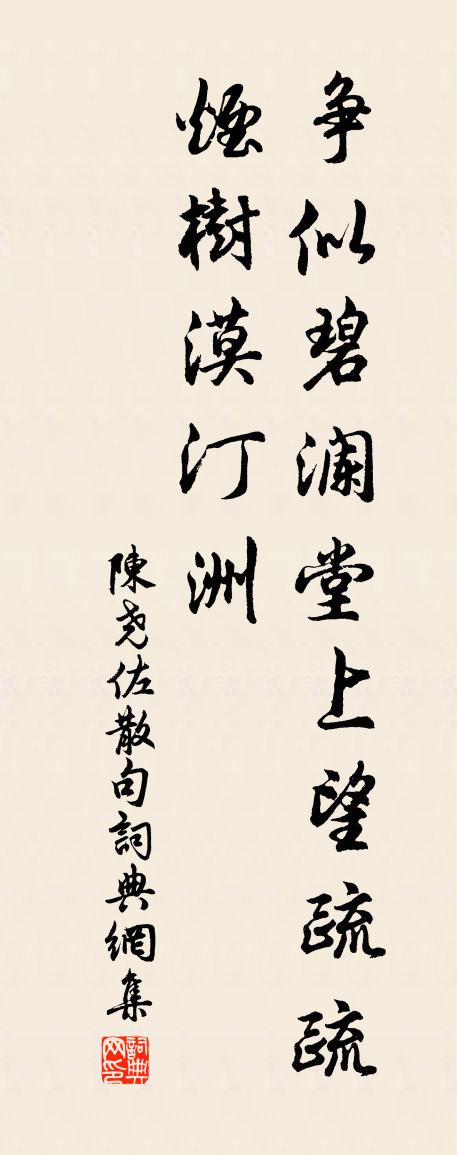 争似碧澜堂上望疏疏
煙樹漠汀洲
陳尧佐散句詞典網集
詞典网印